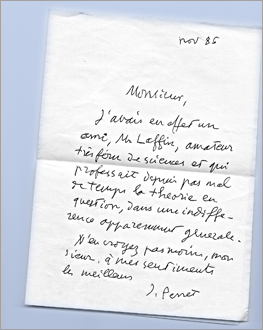 nov 85
Monsieur,
J'avais en effet un
ami, Mr Laffin, amateur
très féru de sciences et qui
professait depuis pas mal
de temps la théorie en
question, dans une indiffé-
rence apparemment générale.
N'en croyez pas moins, mon-
sieur, à mes sentiments
les meilleurs
J. Perret